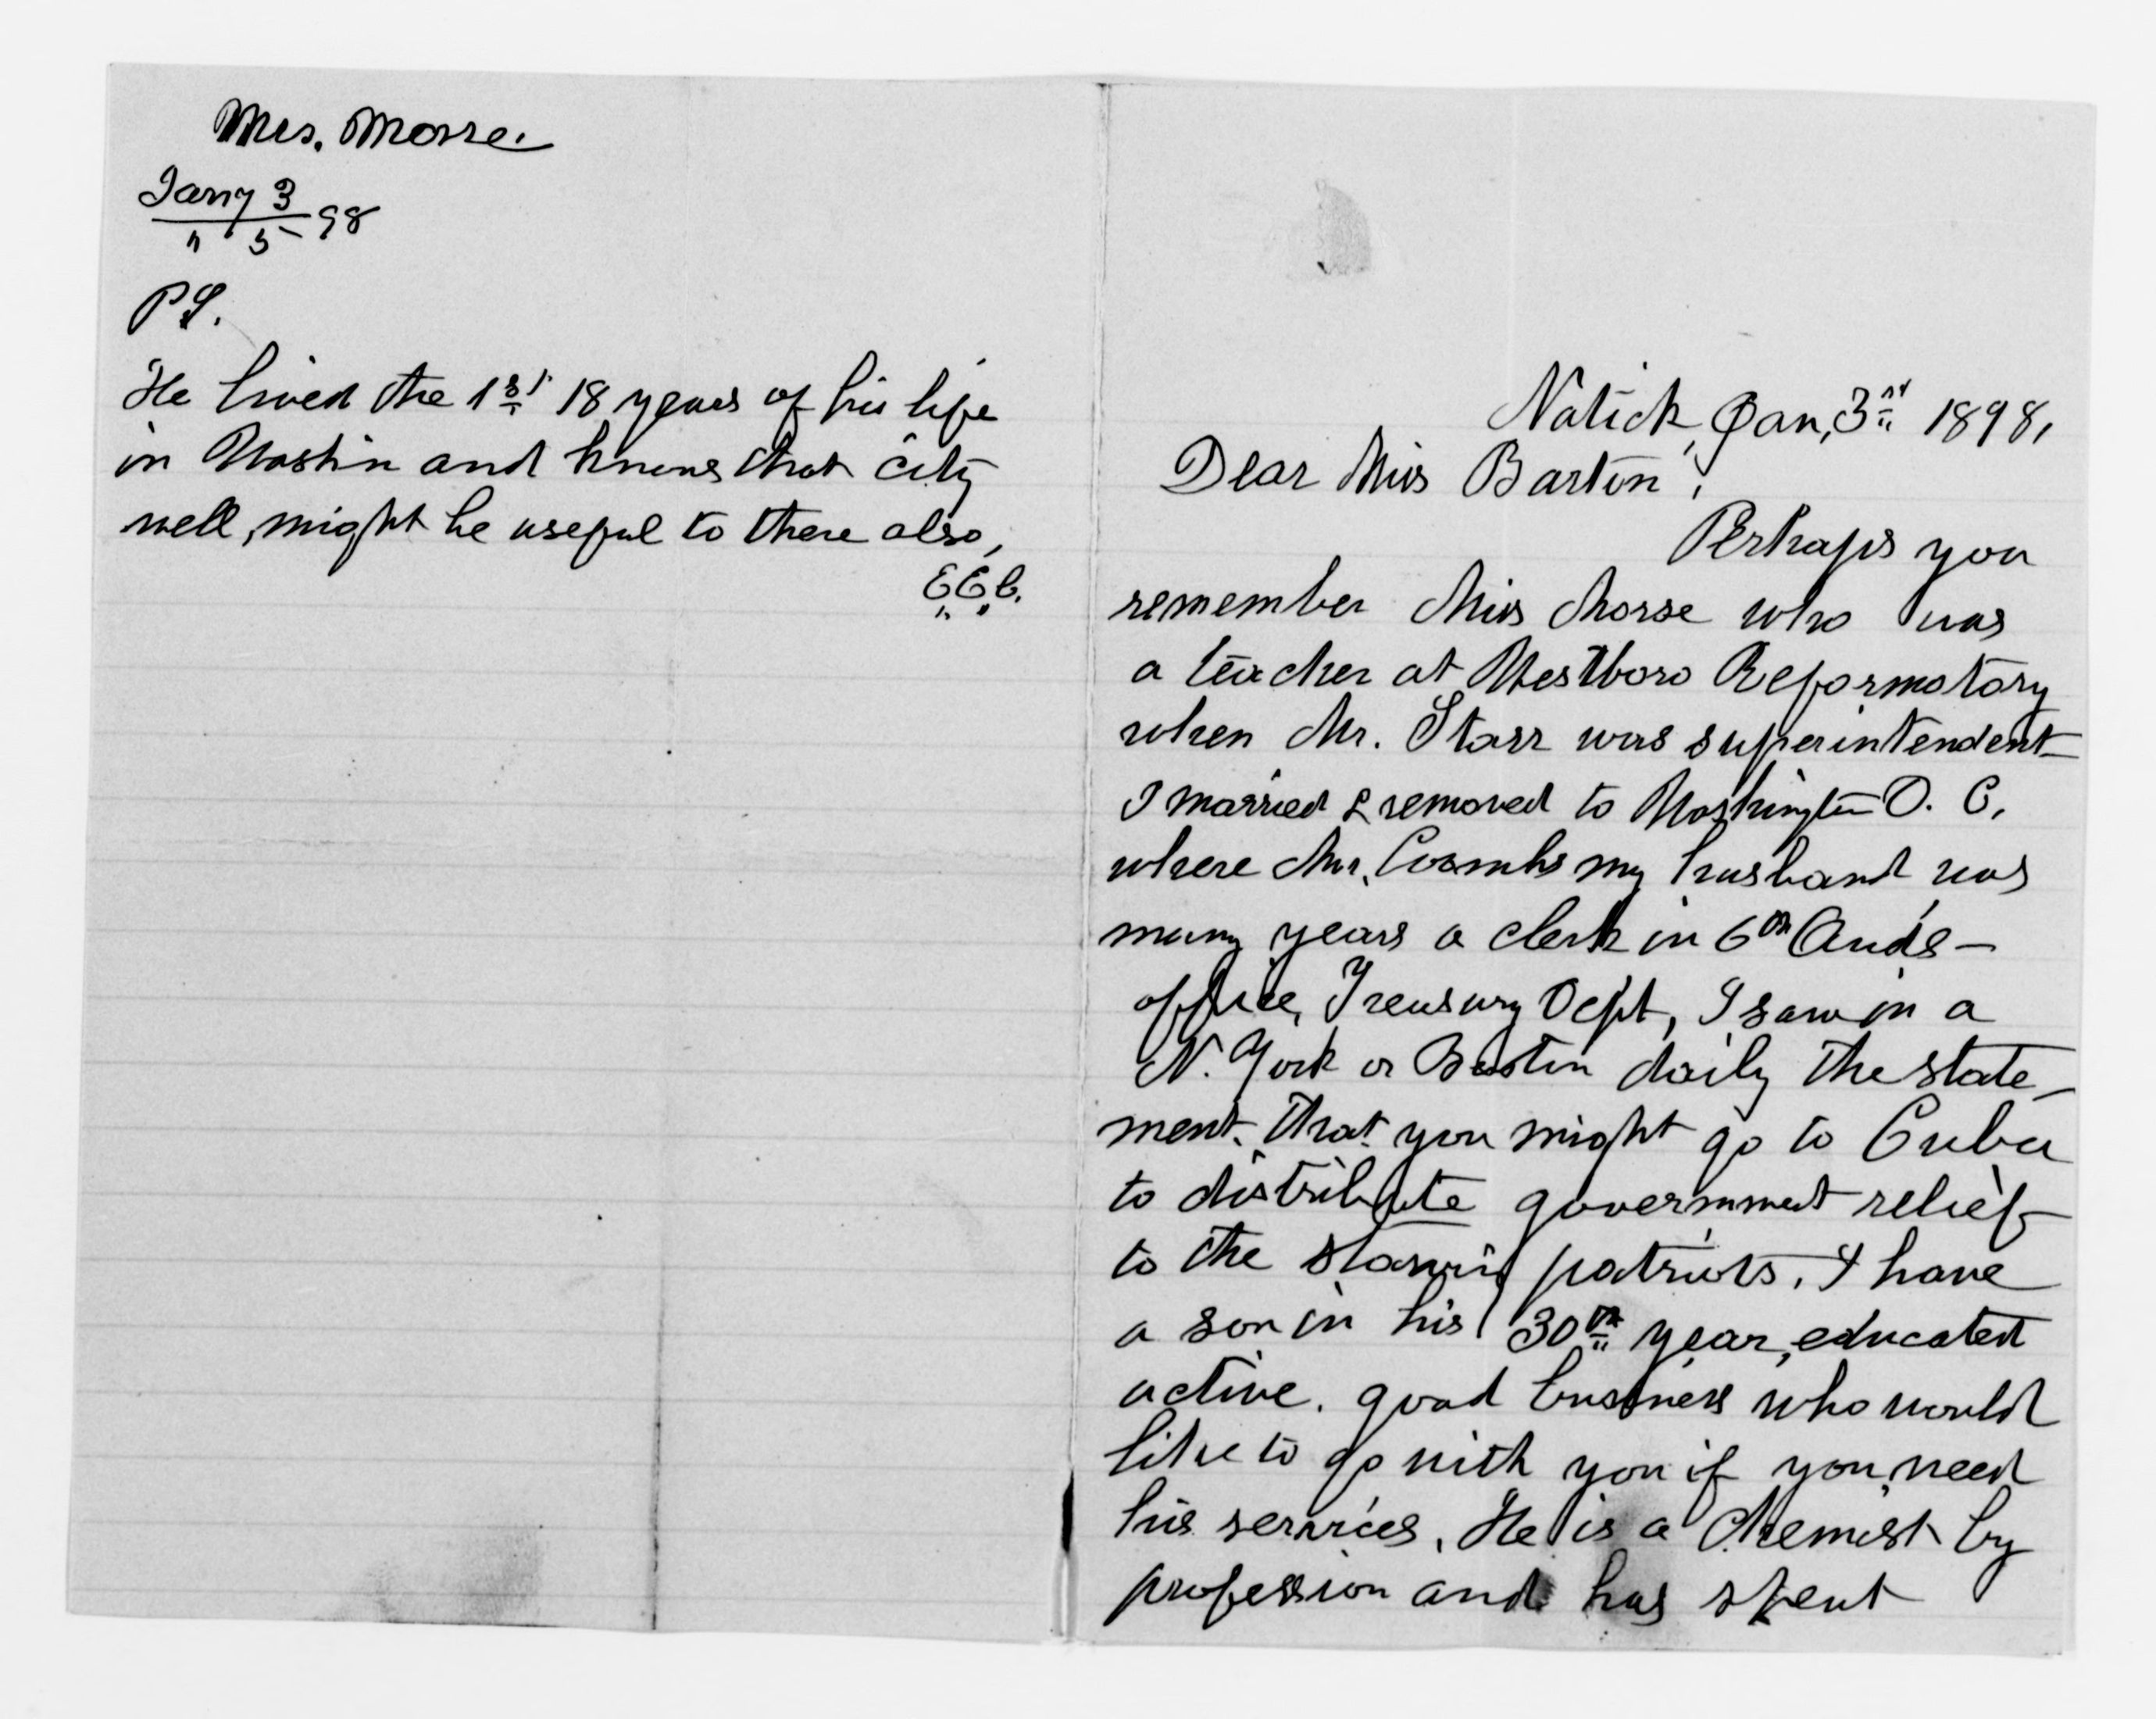 Mrs. Morse.
Jany 3
" 5 - 98
P.S.
He lived the 1st 18 years of his life
in Washn and knows that city
well, might be useful to there also,
E.E.C.
Natick, Jan, 3rd 1898,
Dear Miss Barton;
Perhaps you
remember Miss Morse who was
a teacher at Westboro Reformatory
when Mr. Starr was superintendent
I married & removed to Washington D. C.
where Mr. Coombs my husband was
many years a clerk in 6th Aud's -
office, Treasury Dept, I saw in a
N. York or Boston daily the state-
ment that you might go to Cuba
to distribute government relief
to the starving patriots. I have
a son in his 30th year, educated
active. good business who would
like to go with you if you need
his services. He is a Chemist by
profession and has spent